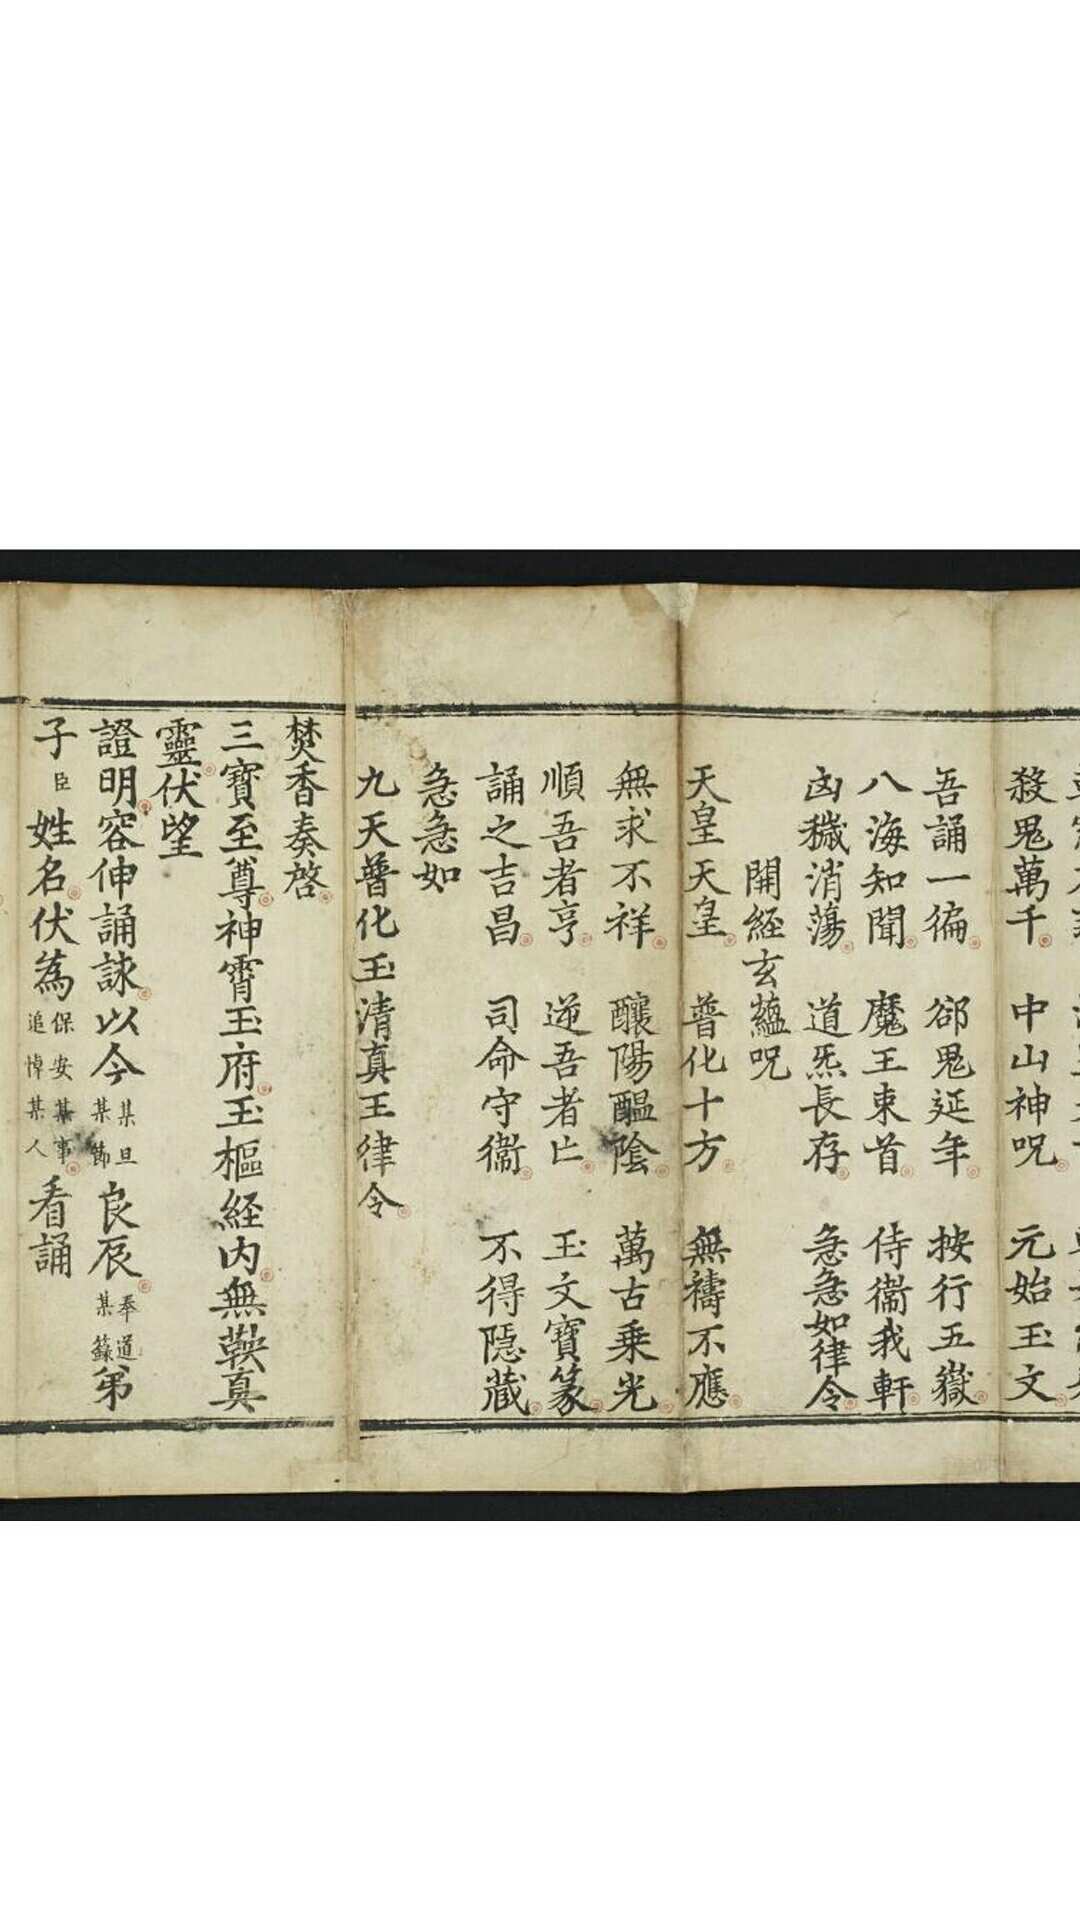 殺鬼萬千　中山神呪　元始玉文
吾誦一徧　郤鬼延年　按行五嶽
八海知聞　魔王束首　侍衞我軒
凶穢消蕩　道炁長存　急急如律令
開経玄蘊呪
天皇天皇　普化十方　無禱不應
無求不祥　釀陽醖陰　萬古乗光
順吾者亨　逆吾者亡　玉文寶篆
誦之吉昌　司命守衞　不得隠藏
急急如
九天普化玉清真王律令
焚香奏啓
三寳至尊神霄玉府玉樞経内無鞅真
靈伏望
證明容伸誦詠以今某旦某節良辰奉道某籙弟
子臣姓名伏為保安某事追悼某人看誦